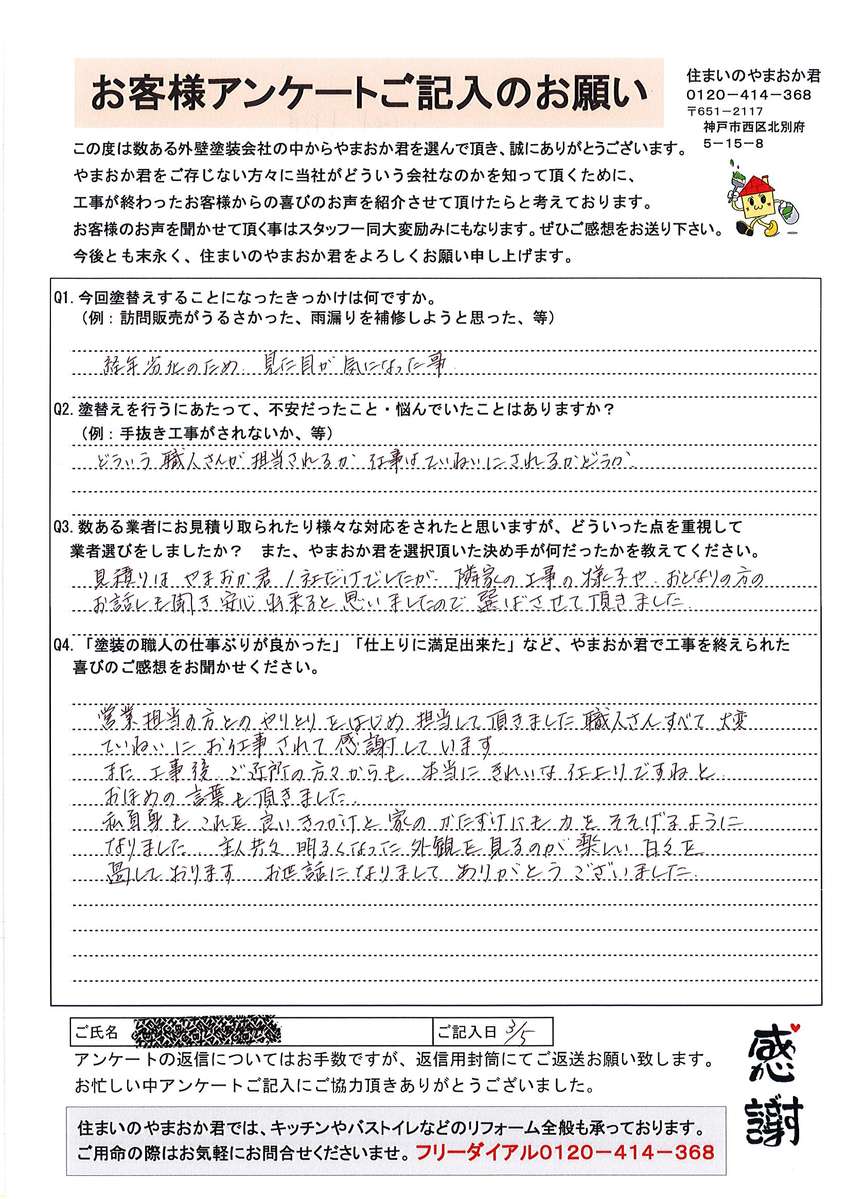 お客様アンケートご記入のお願い
住まいのやまおか君
0120-414-368
〒651-2117
神戸市西区北別府
5-15-8
この度は数ある外壁塗装会社の中からやまおか君を選んで頂き、誠にありがとうございます。
やまおか君をご存じない方々に当社がどういう会社なのかを知って頂くために、
工事が終わったお客様からの喜びのお声を紹介させて頂けたらと考えております。
お客様のお声を聞かせて頂く事はスタッフ一同大変励みにもなります。ぜひご感想をお送り下さい。
今後とも末永く、住まいのやまおか君をよろしくお願い申し上げます。
Q1. 今回塗替えすることになったきっかけは何ですか。
（例：訪問販売がうるさかった、雨漏りを補修しようと思った、等）
経年劣化のため 見た目が気になった事
Q2. 塗替えを行うにあたって、不安だったこと・悩んでいたことはありますか？
（例：手抜き工事がされないか、等）
どういう職人さんが担当されるか 仕事はていねいにされるかどうか
Q3. 数ある業者にお見積り取られたり様々な対応をされたと思いますが、どういった点を重視して
業者選びをしましたか？ また、やまおか君を選択頂いた決め手が何だったかを教えてください。
見積りは やまおか君 1社だけでしたが 隣家の工事の様子や おとなりの方の
お話しも聞き 安心 出来ると思いましたので 選ばさせて頂きました
Q4. 「塗装の職人の仕事ぶりが良かった」「仕上りに満足出来た」など、やまおか君で工事を終えられた
喜びのご感想をお聞かせください。
営業担当の方とのやりとりをはじめ 担当して頂きました職人さんすべて 大変
ていねいに お仕事されて 感謝しています
また 工事後 ご近所の方々からも 本当に きれいな仕上りですねと
おほめの言葉も頂きました
私自身も これを良いきっかけと 家の かたずけにも力をそそげるように
なりました 主人共々 明るくなった外観を見るのが楽しい日々を
過しております お世話になりまして ありがとうございました
ご氏名
ご記入日 3/5
アンケートの返信についてはお手数ですが、返信用封筒にてご返送お願い致します。
お忙しい中アンケートご記入にご協力頂きありがとうございました。
感謝
住まいのやまおか君では、キッチンやバストイレなどのリフォーム全般も承っております。
ご用命の際はお気軽にお問合せくださいませ。フリーダイアル0120-414-368